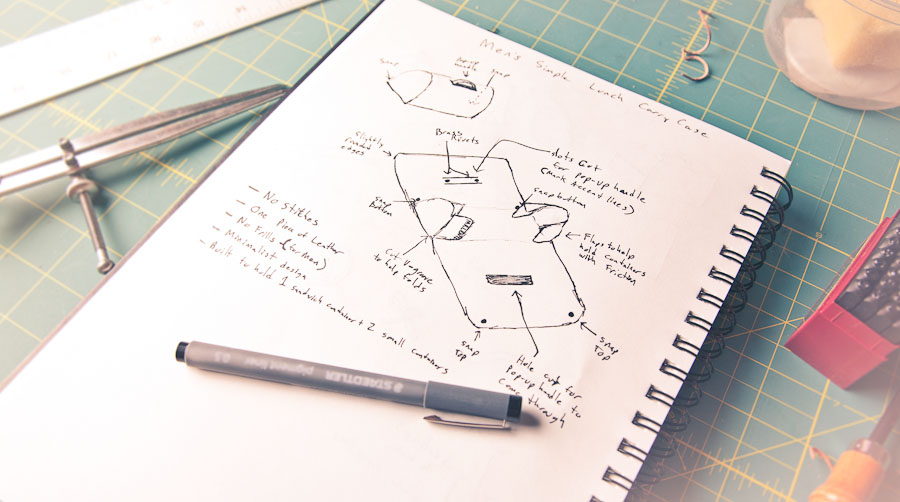 Men's Simple Lunch Carry Case
snap
handle
snap
Slightly
rounded
edges
Brass
rivets
slots Cut
for pop-up handle
(mark Accent lines)
snap button
snap
button
Flaps to help
hold containers
with Friction
Cut V-groove
to help folds
- No Stitches
- One Piece of Leather
- No Frills (for men)
- Minimalist design
- Built to hold 1 sandwich container + 2 small containers
snap
Top
snap
Top
Hole cut for
pop-up handle to
come through
STAEDTLER
pigment liner
0.5